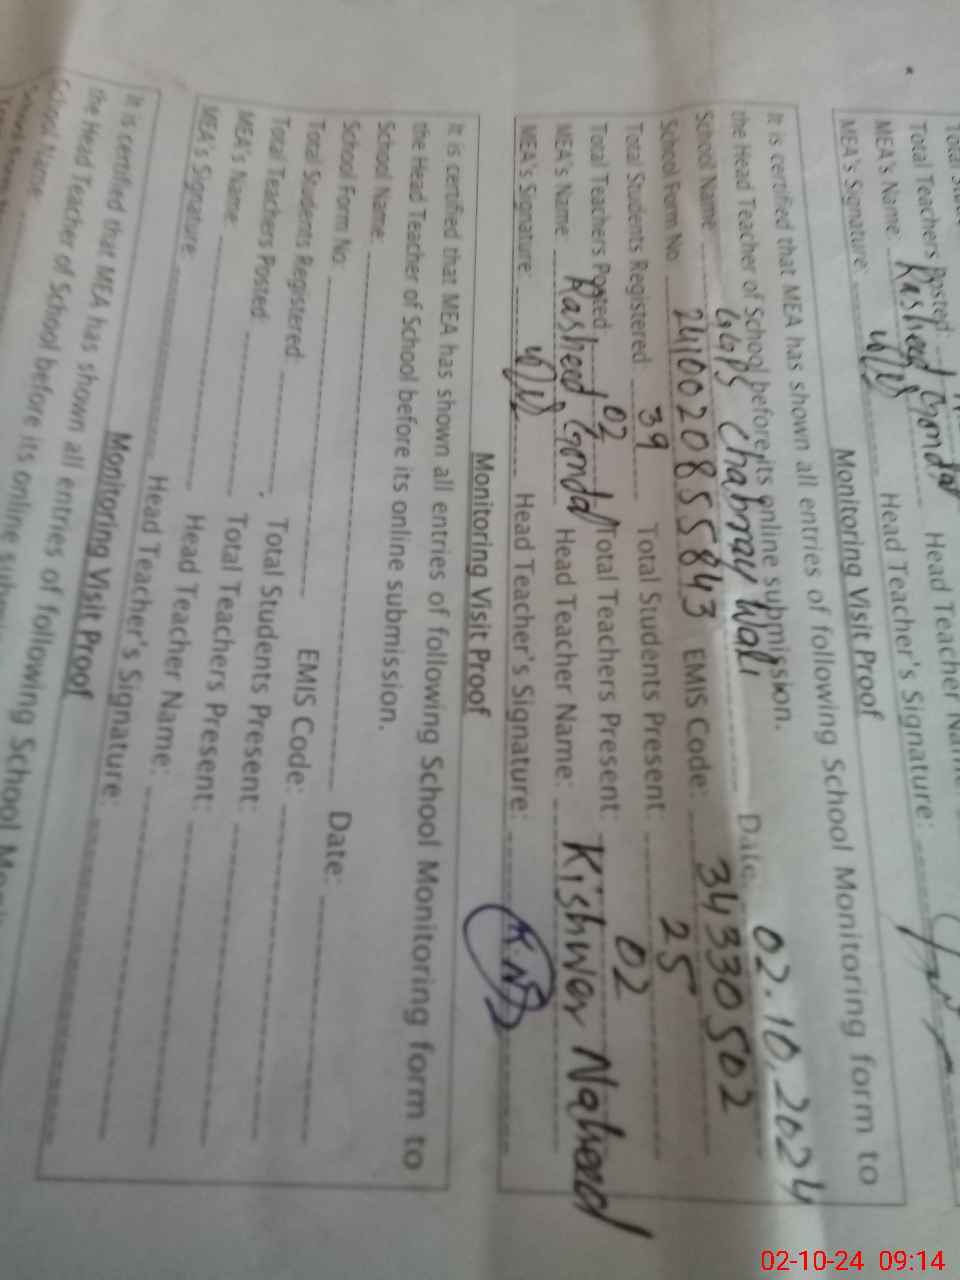 Total Teachers Posted:
MEA's Name: Rasheed Gondal Head Teacher
MEA's Signature: Head Teacher's Signature:
Monitoring Visit Proof
It is certified that MEA has shown all entries of following School Monitoring form to
the Head Teacher of School before its online submission.
School Name: GGPS Chabray Wali Date: 02.10.2024
School Form No. 2410020855843 EMIS Code: 34330502
Total Students Registered: 39 Total Students Present: 25
Total Teachers Posted: 02 Total Teachers Present: 02
MEA's Name: Rasheed Gondal Head Teacher Name: Kishwer Naheed
MEA's Signature: Head Teacher's Signature: K.N
Monitoring Visit Proof
It is certified that MEA has shown all entries of following School Monitoring form to
the Head Teacher of School before its online submission.
School Name: Date:
School Form No: EMIS Code:
Total Students Registered: Total Students Present:
Total Teachers Posted: Total Teachers Present:
MEA's Name: Head Teacher Name:
MEA's Signature: Head Teacher's Signature:
Monitoring Visit Proof
It is certified that MEA has shown all entries of following School
the Head Teacher of School before its online
School Name
02-10-24 09:14